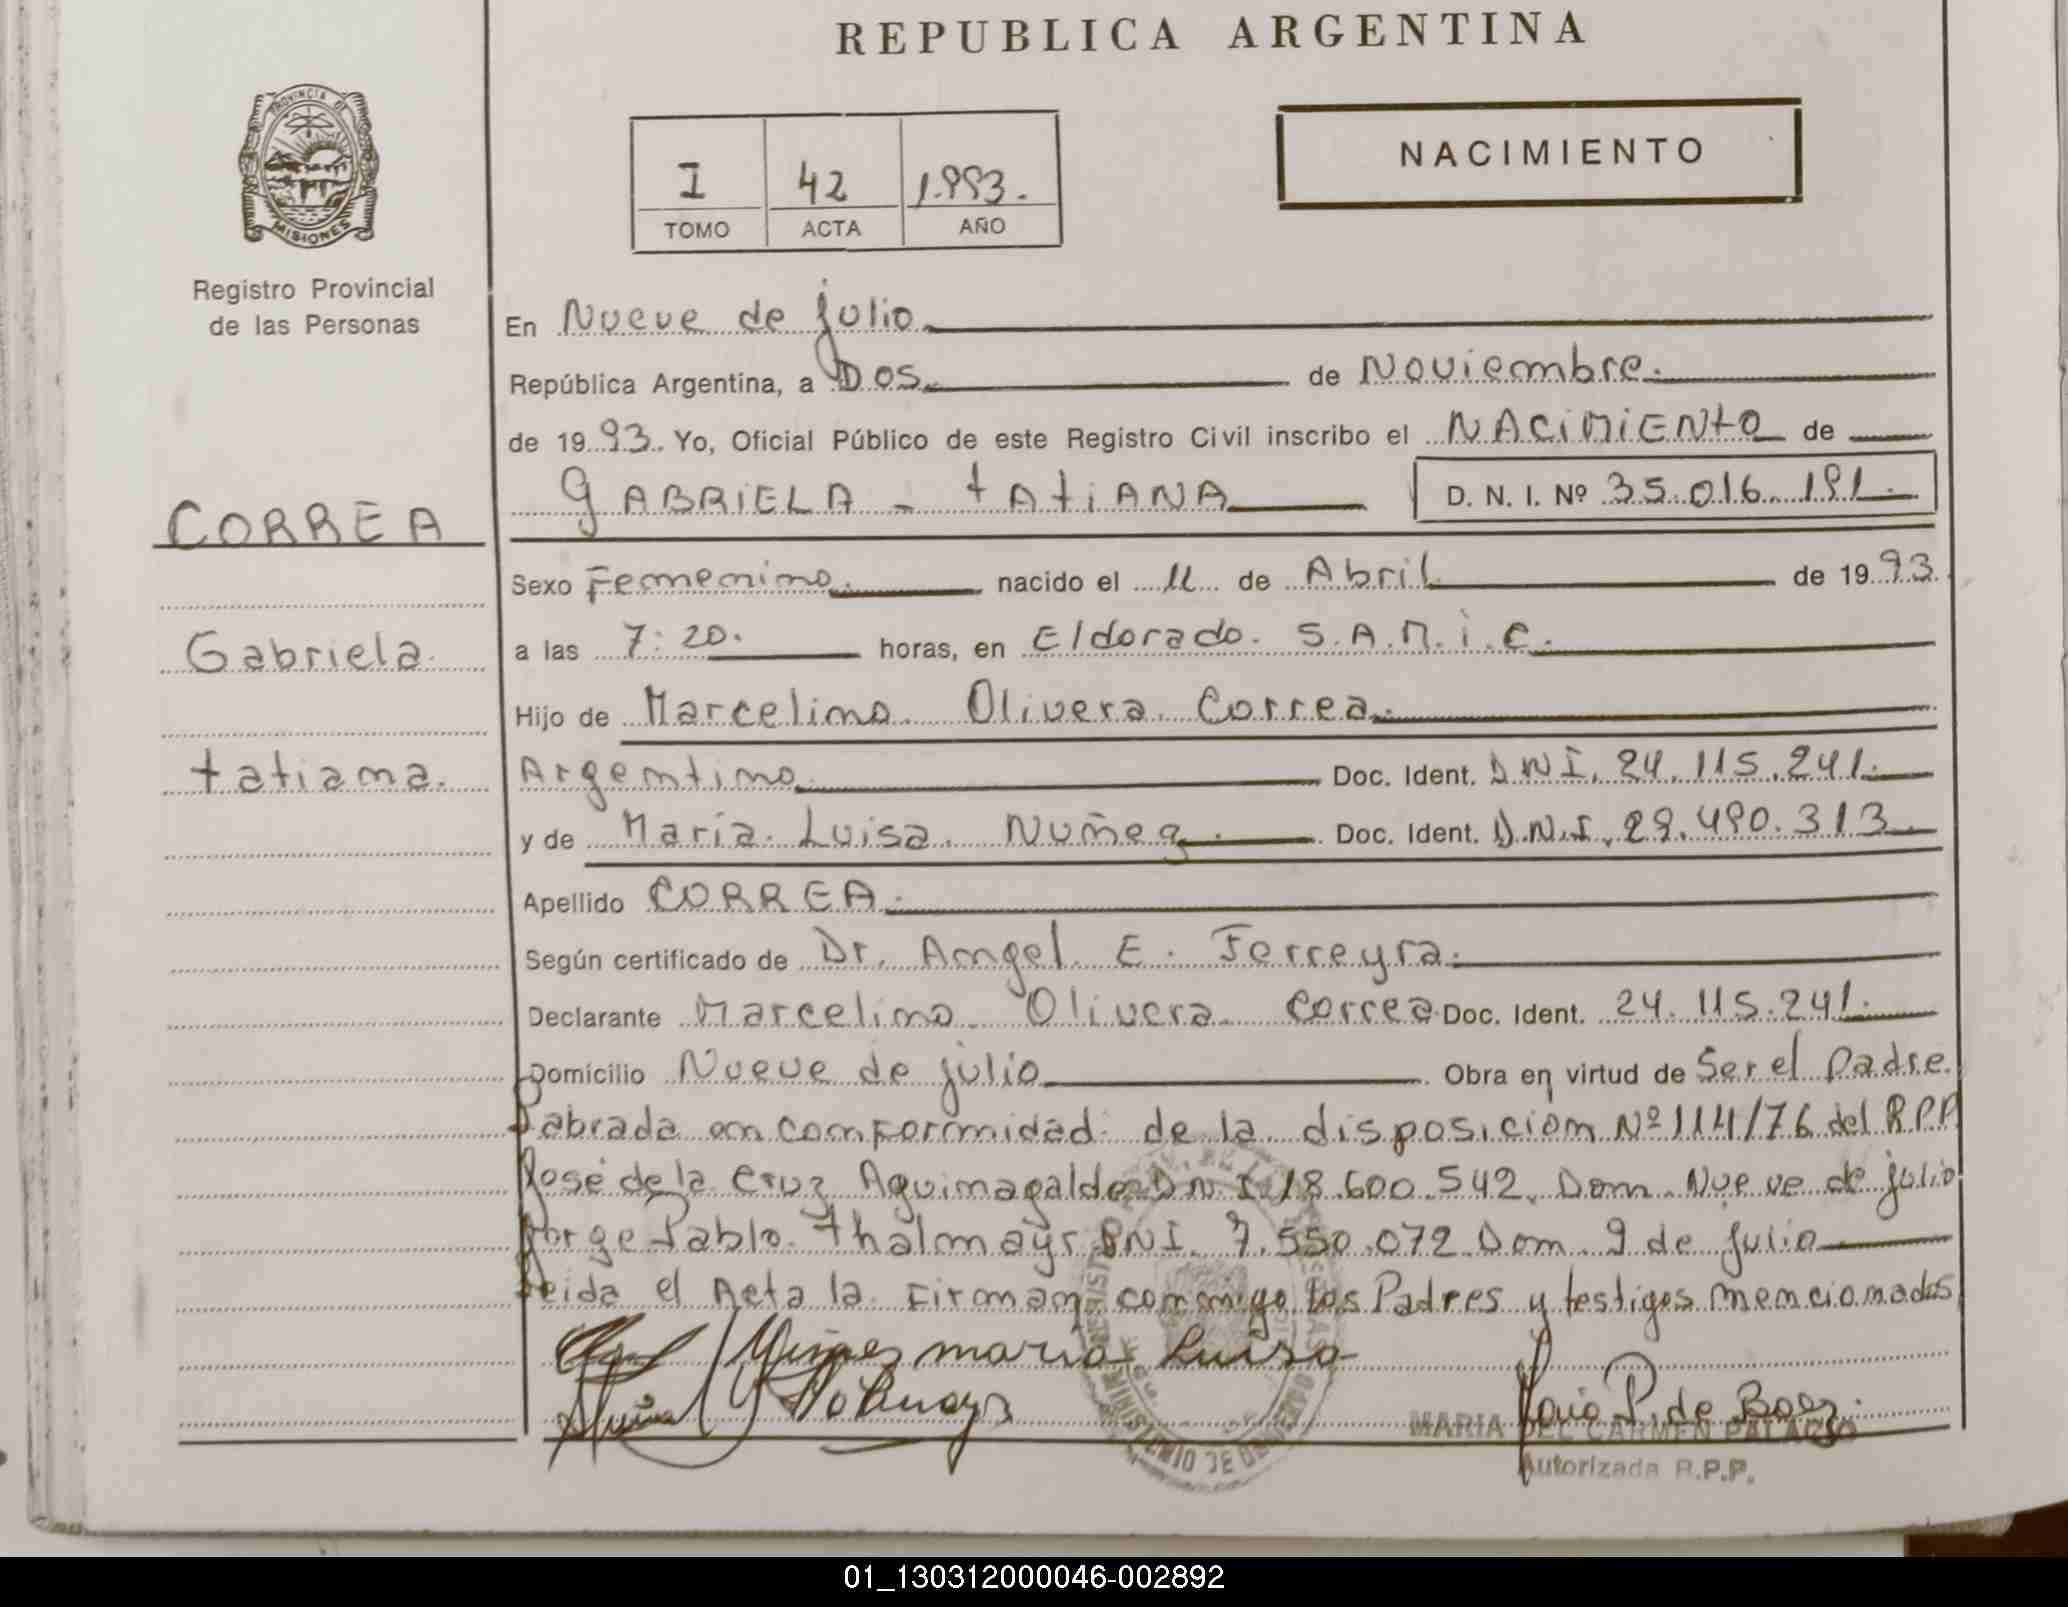 REPUBLICA ARGENTINA
PROVINCIA DE
MISIONES
Registro Provincial
de las Personas
I 42 1.993.
TOMO ACTA AÑO
NACIMIENTO
En Nueve de julio
República Argentina, a Dos de Noviembre.
de 1993. Yo, Oficial Público de este Registro Civil inscribo el NACIMIENTO de
GABRIELA - TATIANA D. N. I. Nº 35.016.191.
CORREA
Gabriela
Tatiana.
Sexo Femenino. nacido el 11 de Abril de 1993.
a las 7:20. horas, en Eldorado. S.A.M.i.C.
Hijo de Marcelino Olivera Correa.
Argentino Doc. Ident. DNI. 24.115.241.
y de Maria Luisa Nuñez. Doc. Ident. D.N.I. 29.490.313.
Apellido CORREA.
Según certificado de Dr. Angel E. Ferreyra.
Declarante Marcelino Olivera Correa Doc. Ident. 24.115.241.
Domicilio Nueve de julio Obra en virtud de Ser el Padre.
Labrada en conformidad de la disposicion Nº 114/76 del R.P.P.
José de la Cruz Aguinagalde D.N.I. 18.600.542. Dom. Nueve de julio
Jorge Pablo Thalmayr DNI. 7.550.072 Dom. 9 de julio
Leida el Acta la Firman conmigo los Padres y testigos mencionados
Nuñez maria Luisa
Maria P. de Baez.
MARIA DEL CARMEN PALACIO
Autorizada R.P.P.
01_130312000046-002892